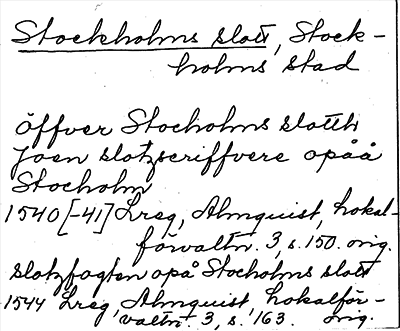 Stockholms slott, Stock-
holms stad
öffver Stocholms slotth
Joen slotzscriffvere opåå
Stocholm
1540[-41] Lreg, Almquist, Lokal-
förvaltn. 3, s. 150. orig.
slotzfogten opå Stocholms slott
1544 Lreg, Almquist, Lokalför-
valtn. 3, s. 163 orig.